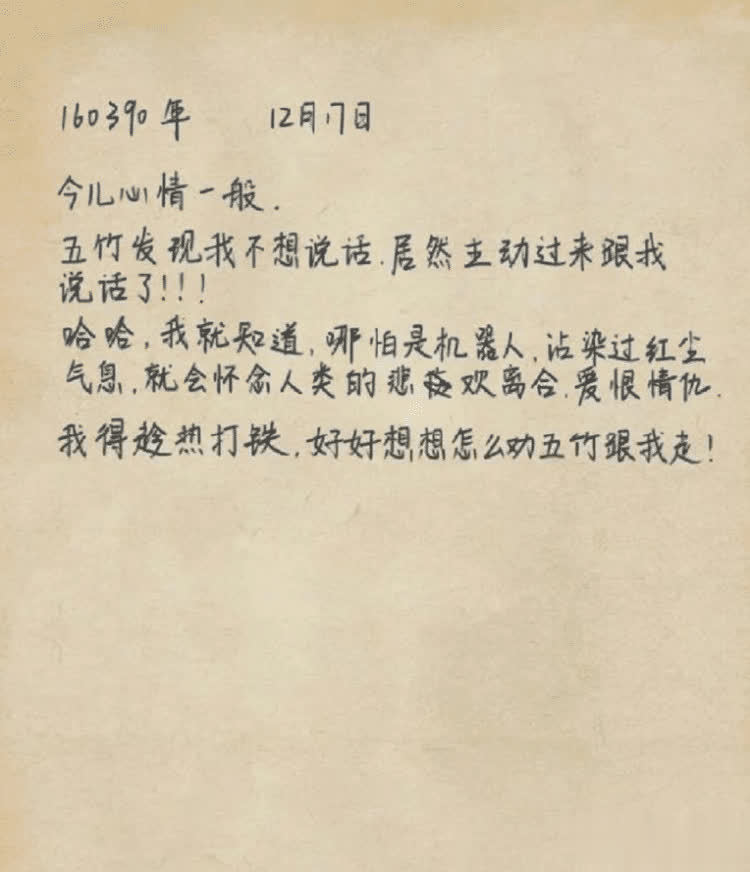 160390年 12月17日
今儿心情一般.
五竹发现我不想说话.居然主动过来跟我
说话了!!!
哈哈,我就知道,哪怕是机器人,沾染过红尘
气息,就会怀念人类的悲欢离合.爱恨情仇.
我得趁热打铁,好好想想怎么劝五竹跟我走!